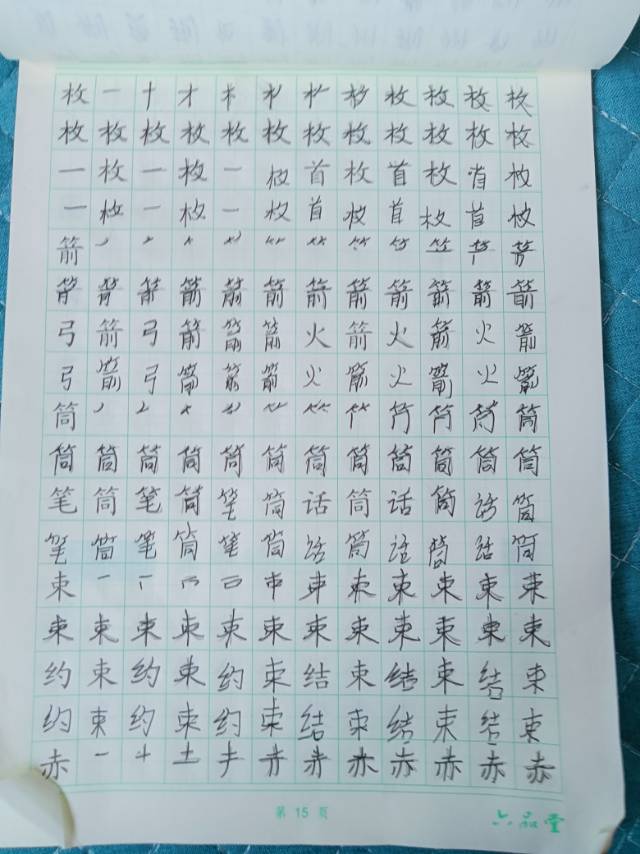 枚一十才枚枚枚枚枚
枚枚枚枚枚枚枚枚枚枚枚枚
一枚一枚一枚首枚首枚首枚
一枚一枚一枚首枚首枚首枚
箭
箭箭箭箭箭箭箭箭箭
弓箭弓箭箭箭火箭火箭火箭
弓箭弓箭箭箭火箭火箭火箭
筒筒
筒筒筒筒筒筒筒筒筒筒筒筒
笔筒笔筒笔筒话筒话筒话筒
笔筒笔筒笔筒话筒话筒话筒
束一束束束束束
束束束束束束束束束束束束
约束约束约束结束结束结束
约束约束约束结束结束结束
赤一十土赤赤赤赤赤
第 15 页 六品堂